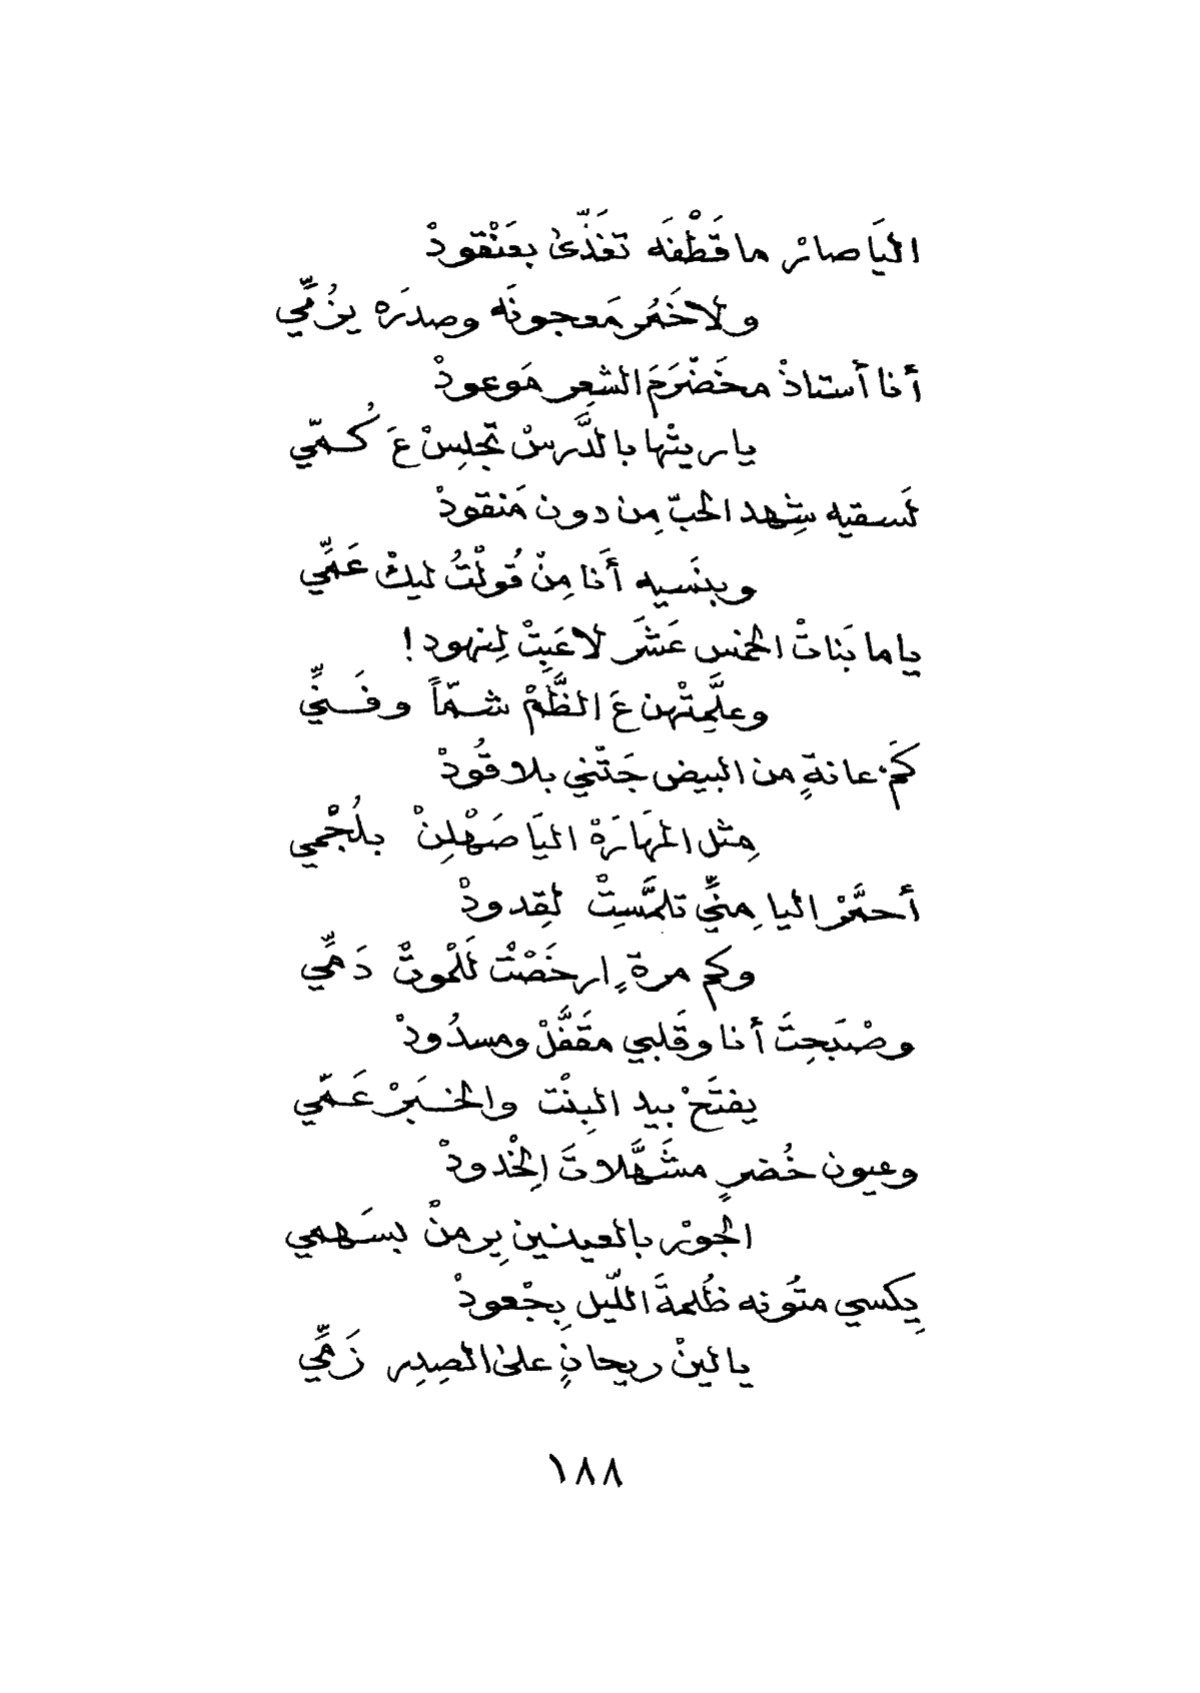 اليَا صارْ ما قَطْفَه تغَذّىٰ بعَنْقودْ
ولا خَمُر مَعجونَه وصدرَه يزُمِّي
أنا أستاذْ مخَضْرَمَ الشعِر مَوعودْ
ياريتْها بالدَّرسْ تجلِسْ عَ كُمّي
لَسقيه شِهد الحبّ مِن دون مَنقودْ
وبنَسيه أَنا مِنْ قُولْتُ ليكْ عَمِّي
ياما بَناتْ الخمس عَشَر لاعَبِتْ لِنهود!
وعلَّمِتْهن عَ الظَّمْ شمّاً وفَنِّي
كَمْ عانةٍ من البيض جَتْني بلا قُودْ
مِثل المهَارَهْ اليَا صَهْلِنْ بلُجْمي
أحمَّرْ اليا مِنِّي تلمَّسِتْ لقِدودْ
وكم مرةٍ ارخَصْتْ لَلْموتْ دَمِّي
وصْبَحِتَ أنا وقَلبي مقَفَّلْ ومسدُودْ
يفتَحْ بيد البِنْت والخبَرْ عَمّي
وعيون خُضرٍ مشَهَّلاتَ الِخْدودْ
الجورْ بالعينين يِرمنْ بسَهمي
يِكسي متُونه ظُلمةَ اللّيل بِجْعودْ
يالينْ ريحانٍ علىٰ الصِدِر زَمِّي
١٨٨